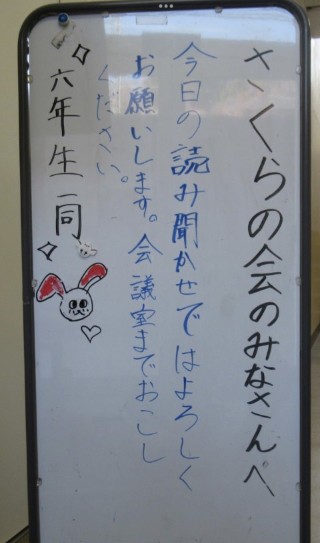 さくらの会のみなさんへ
今日の読み聞かせではよろしく
お願いします。会議室までおこし
ください。
六年生一同